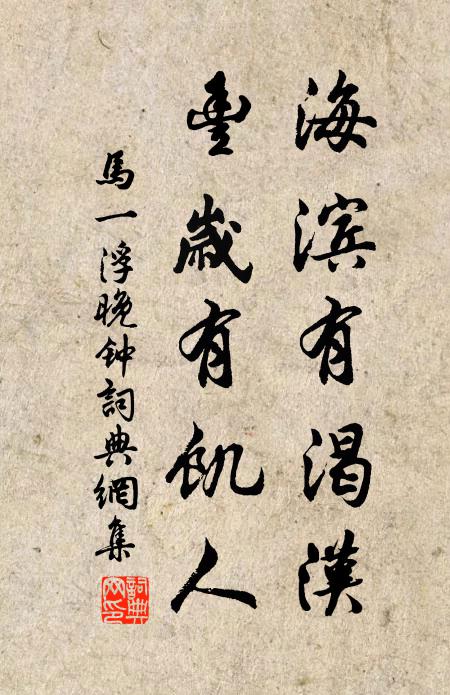 海滨有渴漢
豊歲有飢人
馬一浮晚钟詞典網集
詞典网印